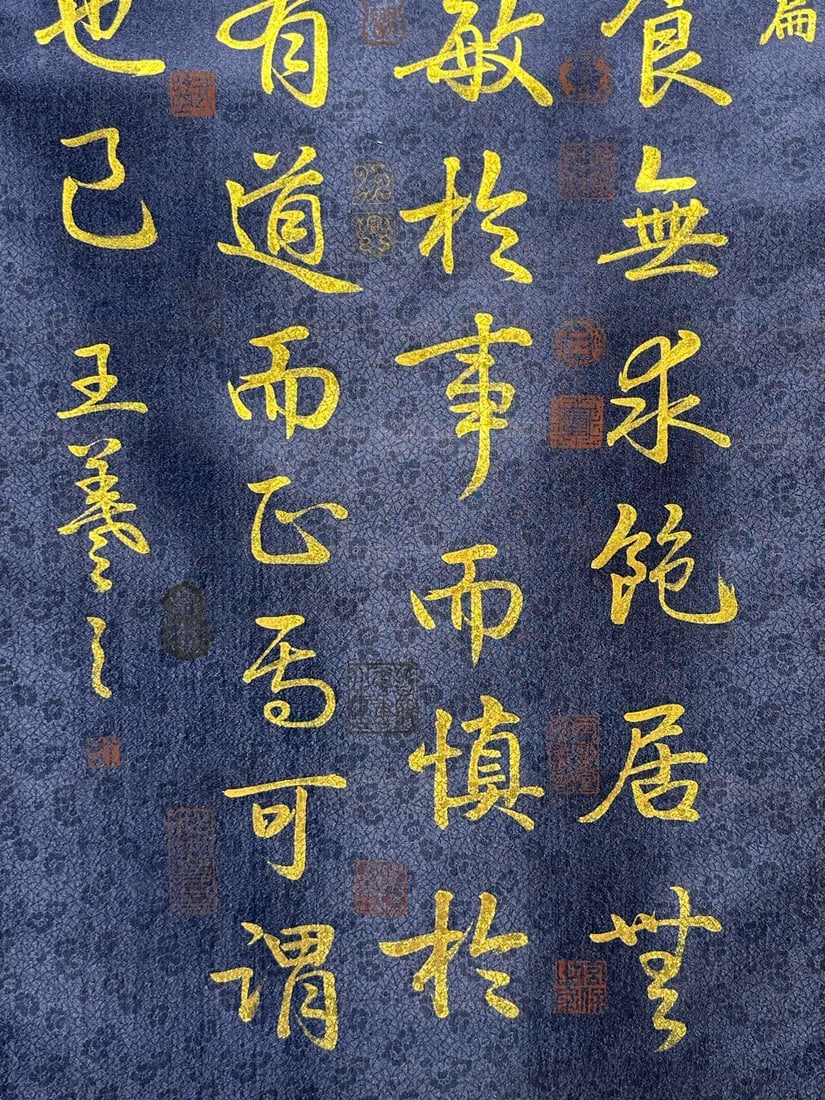 扁
食無求飽居無
敏於事而慎於
有道而正焉可謂
也已
王羲之